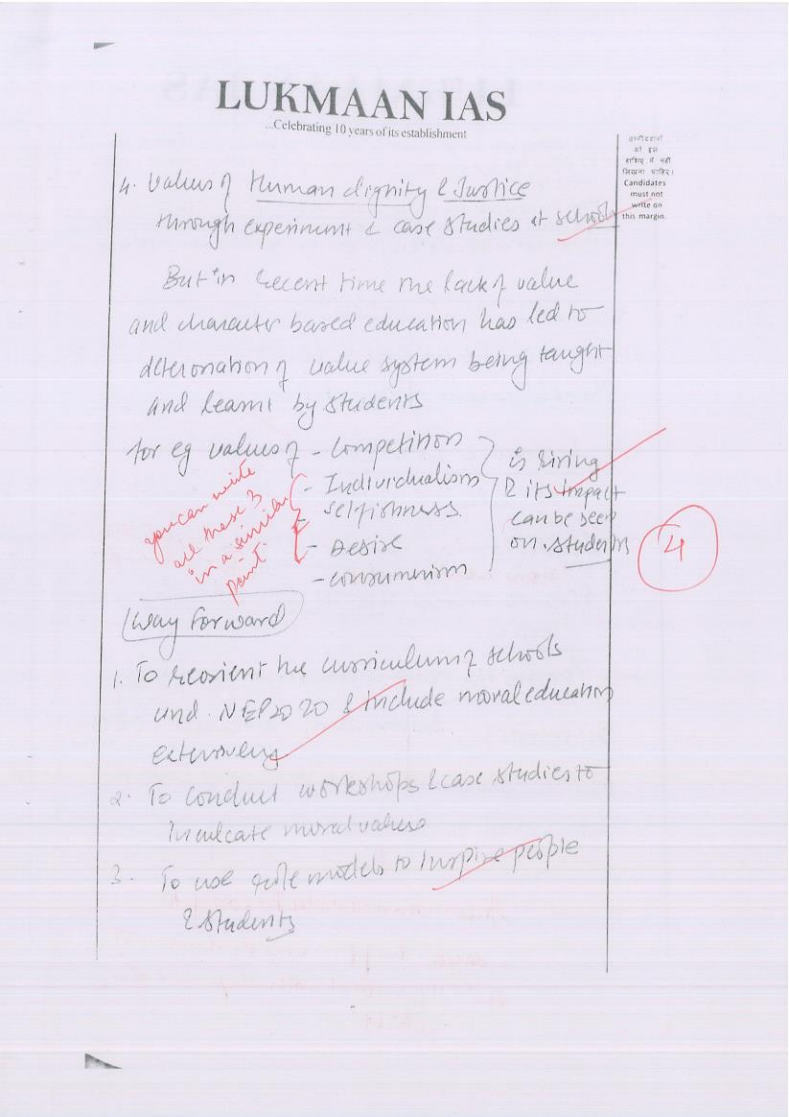 LUKMAAN IAS
...Celebrating 10 years of its establishment
उम्मीदवारों
को इस
हाशिए में नहीं
लिखना चाहिए।
Candidates
must not
write on
this margin.
4. Values of Human dignity & Justice
through experiment & case studies at schools
But in recent time the lack of value
and character based education has led to
deterioration of value system being taught
and learnt by students
for eg values of - Competition
- Individualism
- selfishness
- Desire
- consumerism
is rising
& its impact
can be seen
on students
you can write
all these 3
in a similar
point.
4
Way Forward
1. To reorient the curriculum of schools
und. NEP 2020 & include moral education
extensively
2. To conduct workshops & case studies to
inculcate moral values
3. To use role models to inspire people
& students